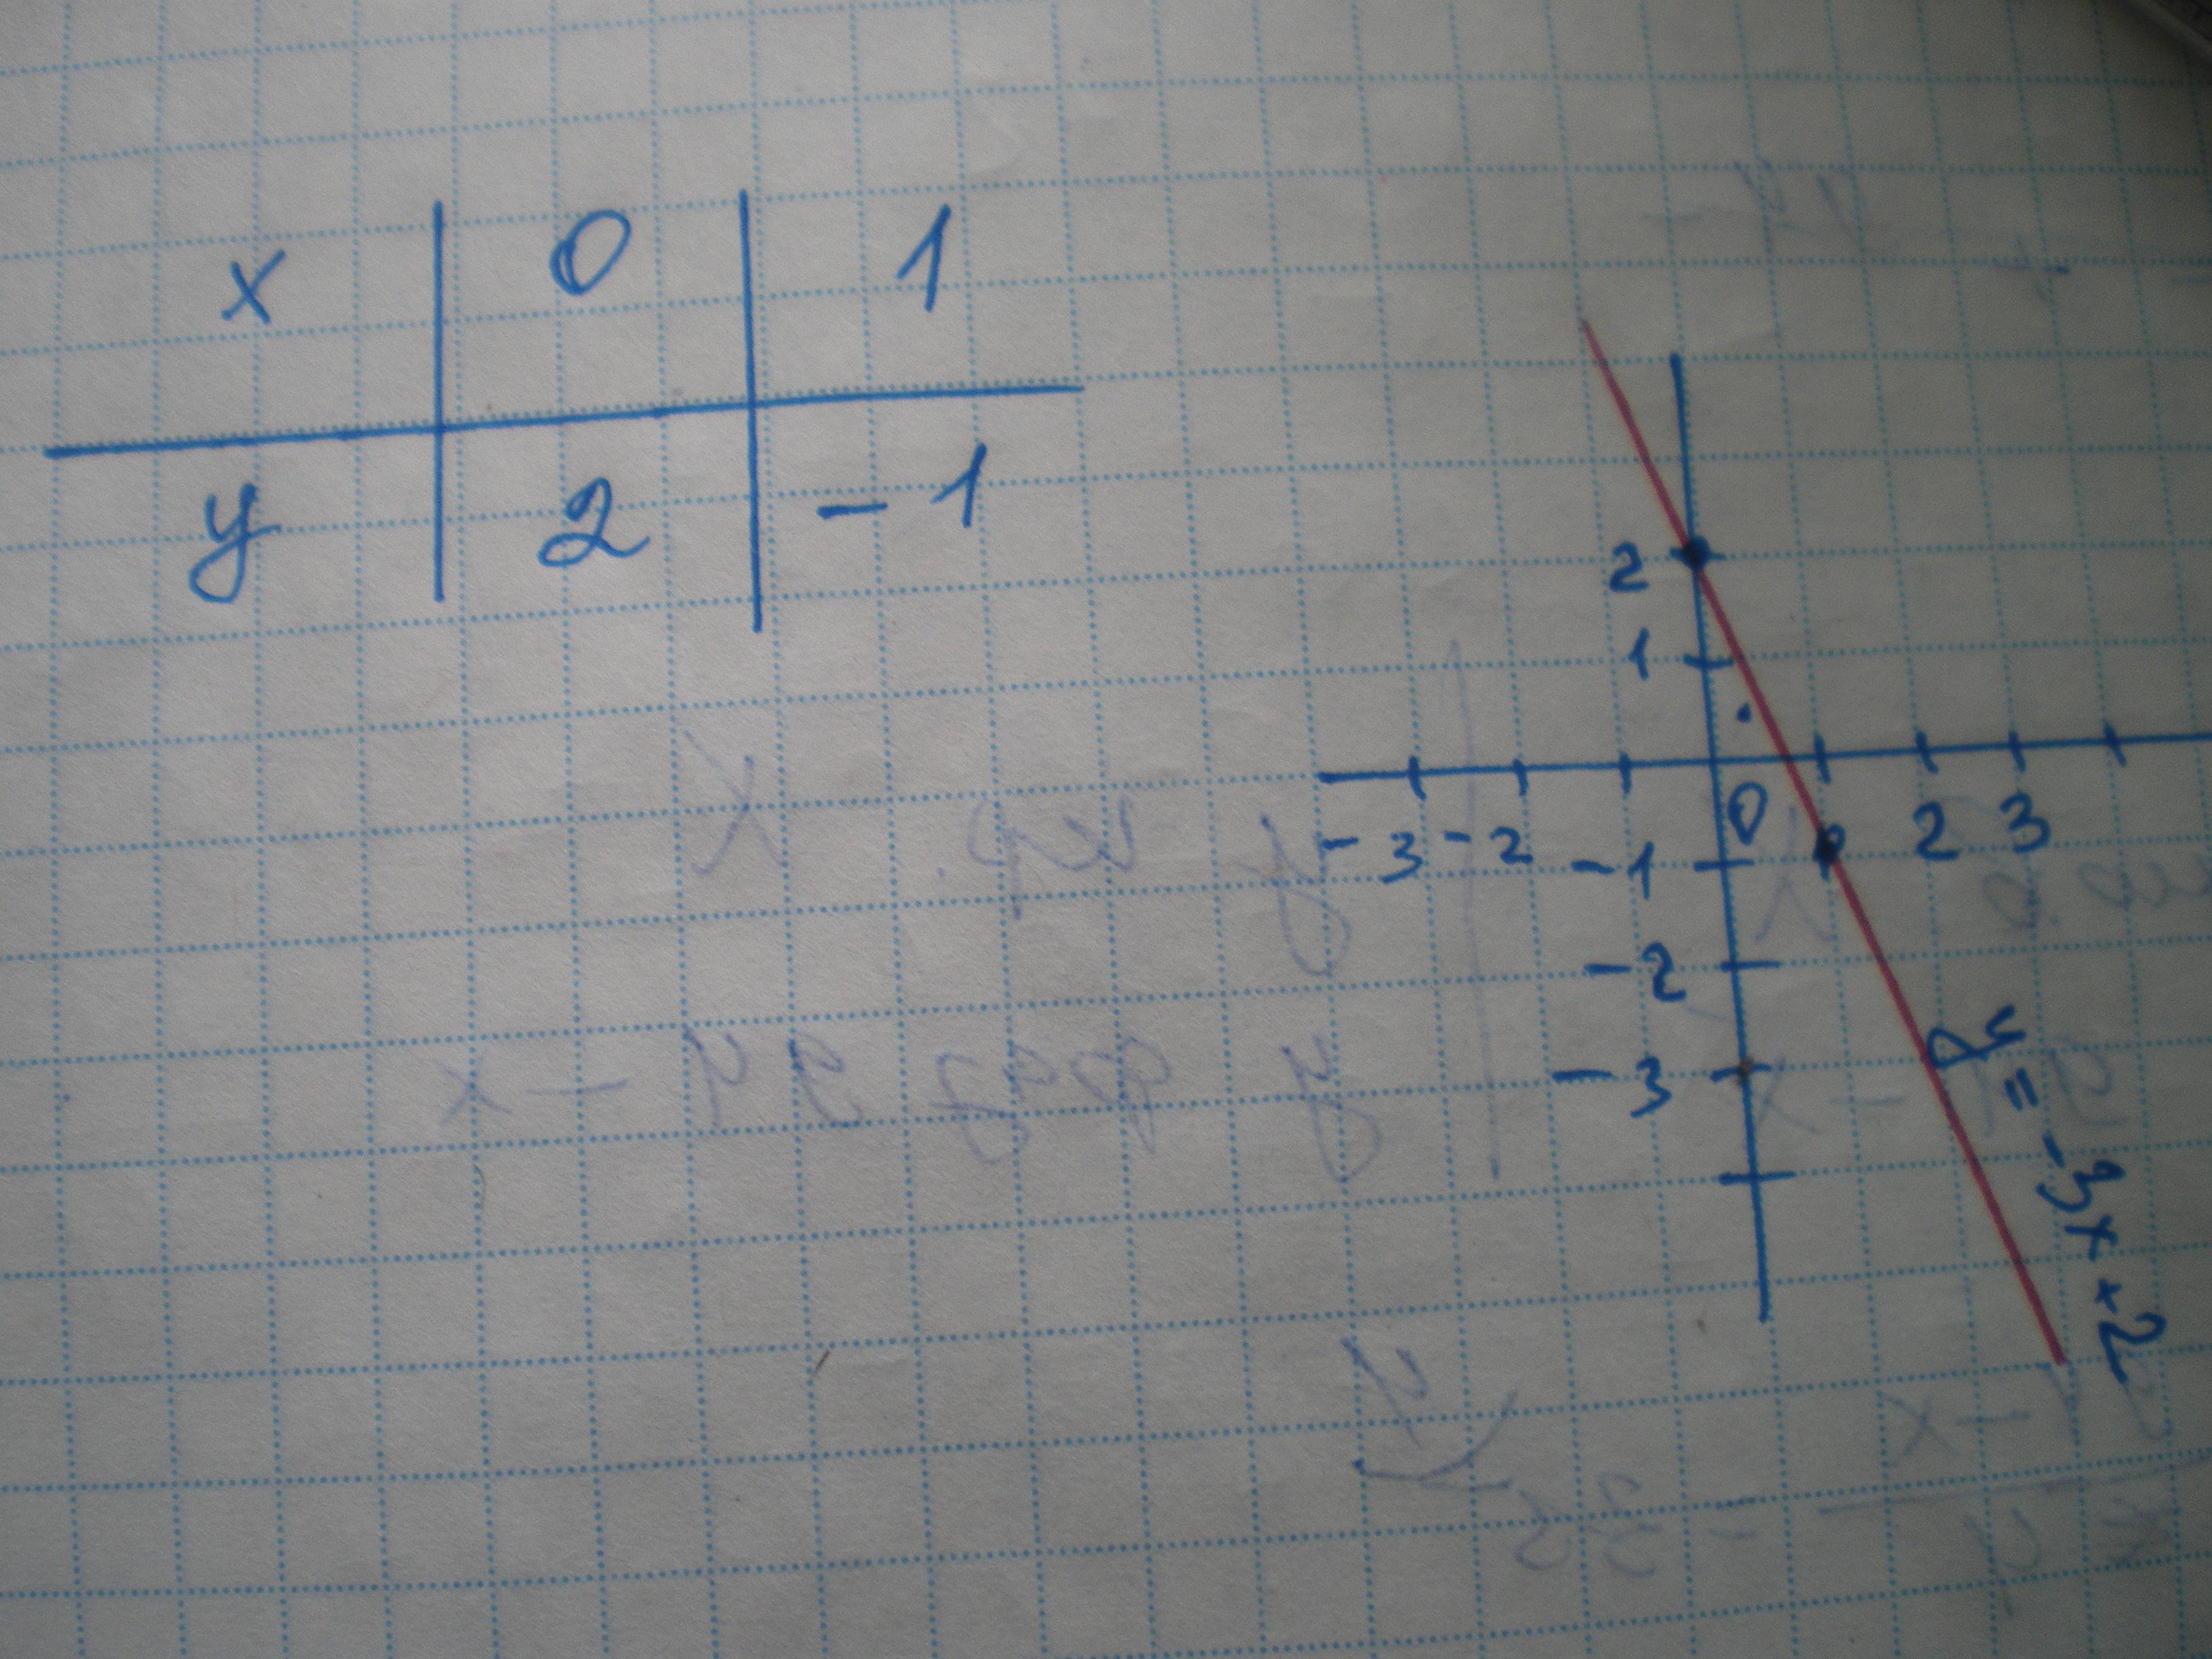 x 0 1
y 2 -1
2
1
0
-3 -2 -1 2 3
-2
-3
y = -3x + 2